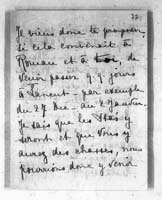 72.
Je viens donc te proposer,
si cela convenait à
Romain et à toi, de
venir passer 4 jours
à par exemple
du 27 Dec. au 2 Janvier.
Je sais que les
seront et que vous y
aurez des chasses, nous
pourrions donc y